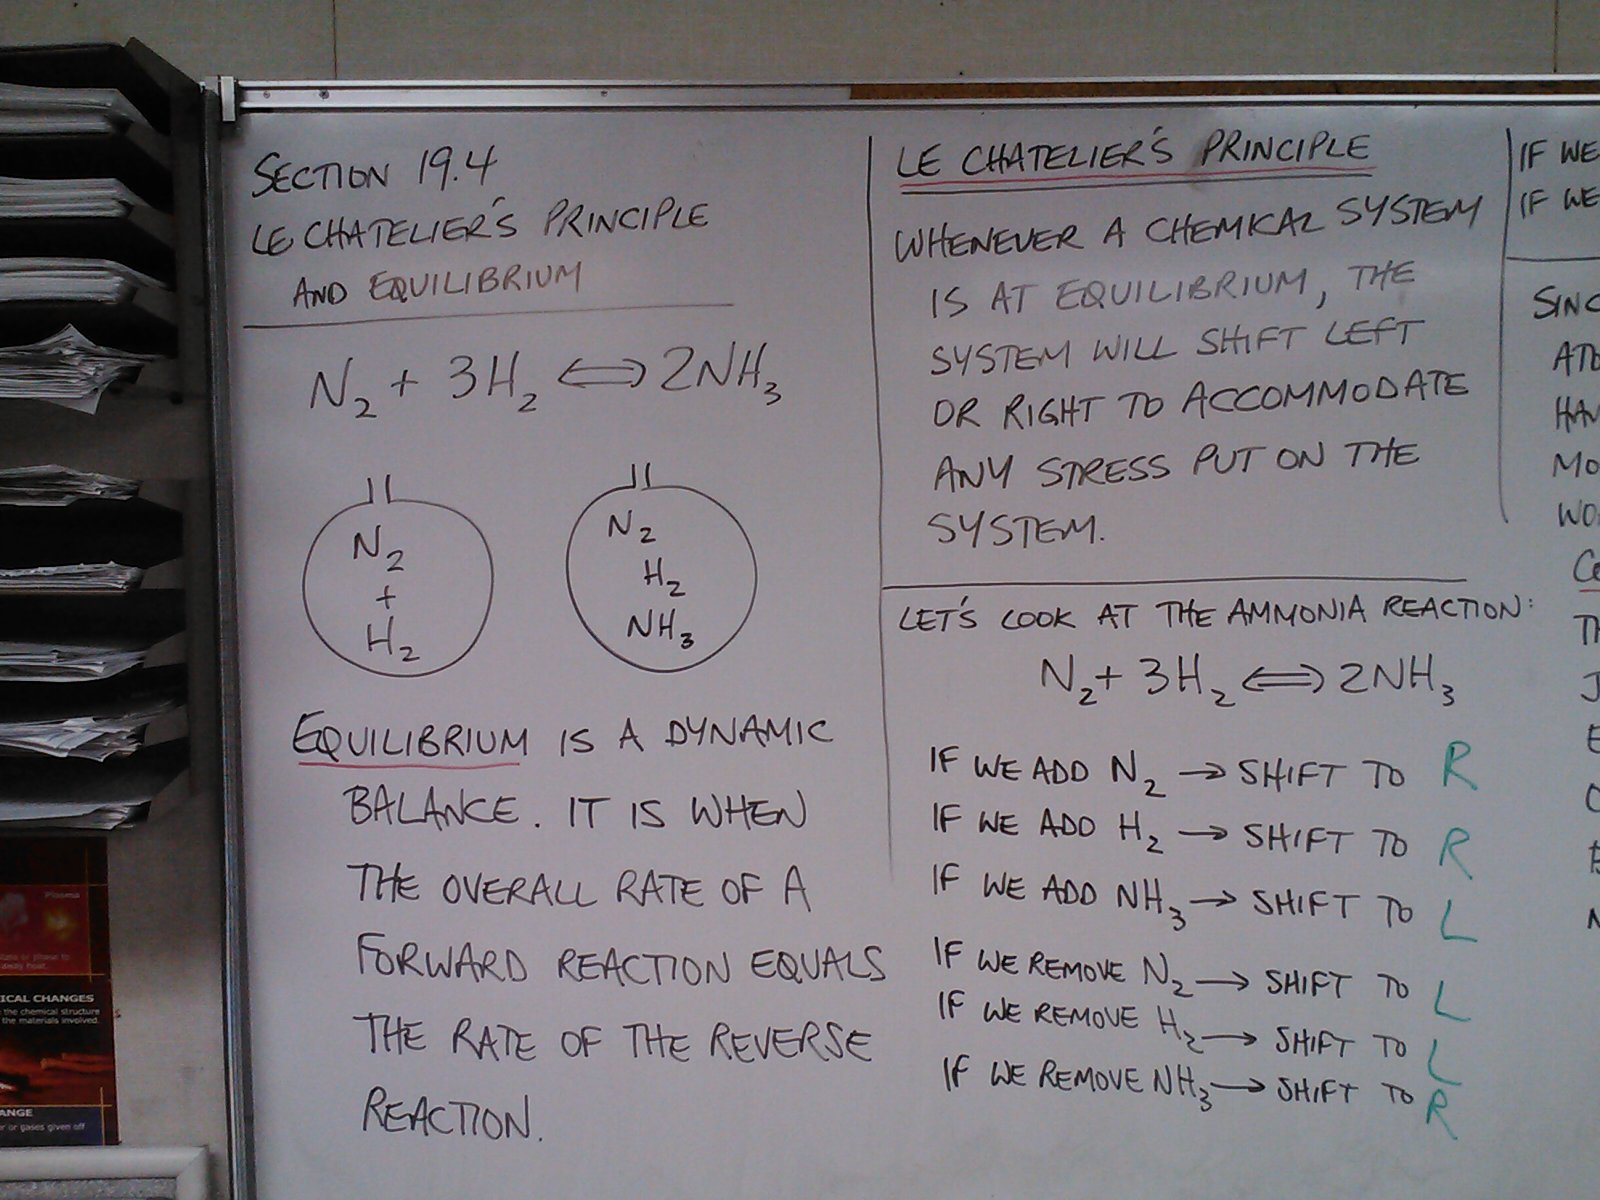 SECTION 19.4
LE CHATELIER'S PRINCIPLE
AND EQUILIBRIUM
N2 + 3H2 ⇔ 2NH3
N2
+
H2
N2
H2
NH3
EQUILIBRIUM IS A DYNAMIC
BALANCE. IT IS WHEN
THE OVERALL RATE OF A
FORWARD REACTION EQUALS
THE RATE OF THE REVERSE
REACTION.
LE CHATELIER'S PRINCIPLE
WHENEVER A CHEMICAL SYSTEM
IS AT EQUILIBRIUM, THE
SYSTEM WILL SHIFT LEFT
OR RIGHT TO ACCOMMODATE
ANY STRESS PUT ON THE
SYSTEM.
LET'S LOOK AT THE AMMONIA REACTION:
N2 + 3H2 ⇔ 2NH3
IF WE ADD N2 → SHIFT TO R
IF WE ADD H2 → SHIFT TO R
IF WE ADD NH3 → SHIFT TO L
IF WE REMOVE N2 → SHIFT TO L
IF WE REMOVE H2 → SHIFT TO L
IF WE REMOVE NH3 → SHIFT TO R
IF WE
IF WE
SINC
ATO
HAV
MO
WO
Plasma
ICAL CHANGES
the chemical structure
the materials involved.
ANGE
or gases given off